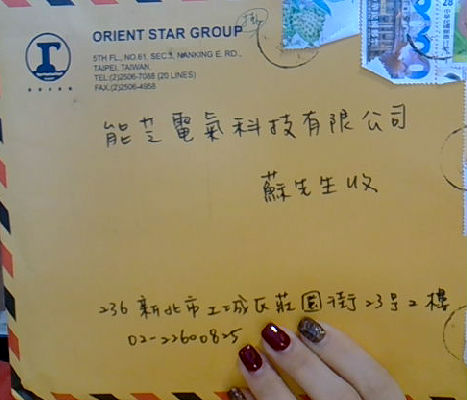 ORIENT STAR GROUP
5TH FL., NO.61, SEC.3, NANKING E. RD.,
TAIPEI, TAIWAN.
TEL:(2)2506-7088 (20 LINES)
FAX:(2)2506-4958
能芝電氣科技有限公司
蘇先生收
236 新北市土城區莊園街23号2樓
02-22600825